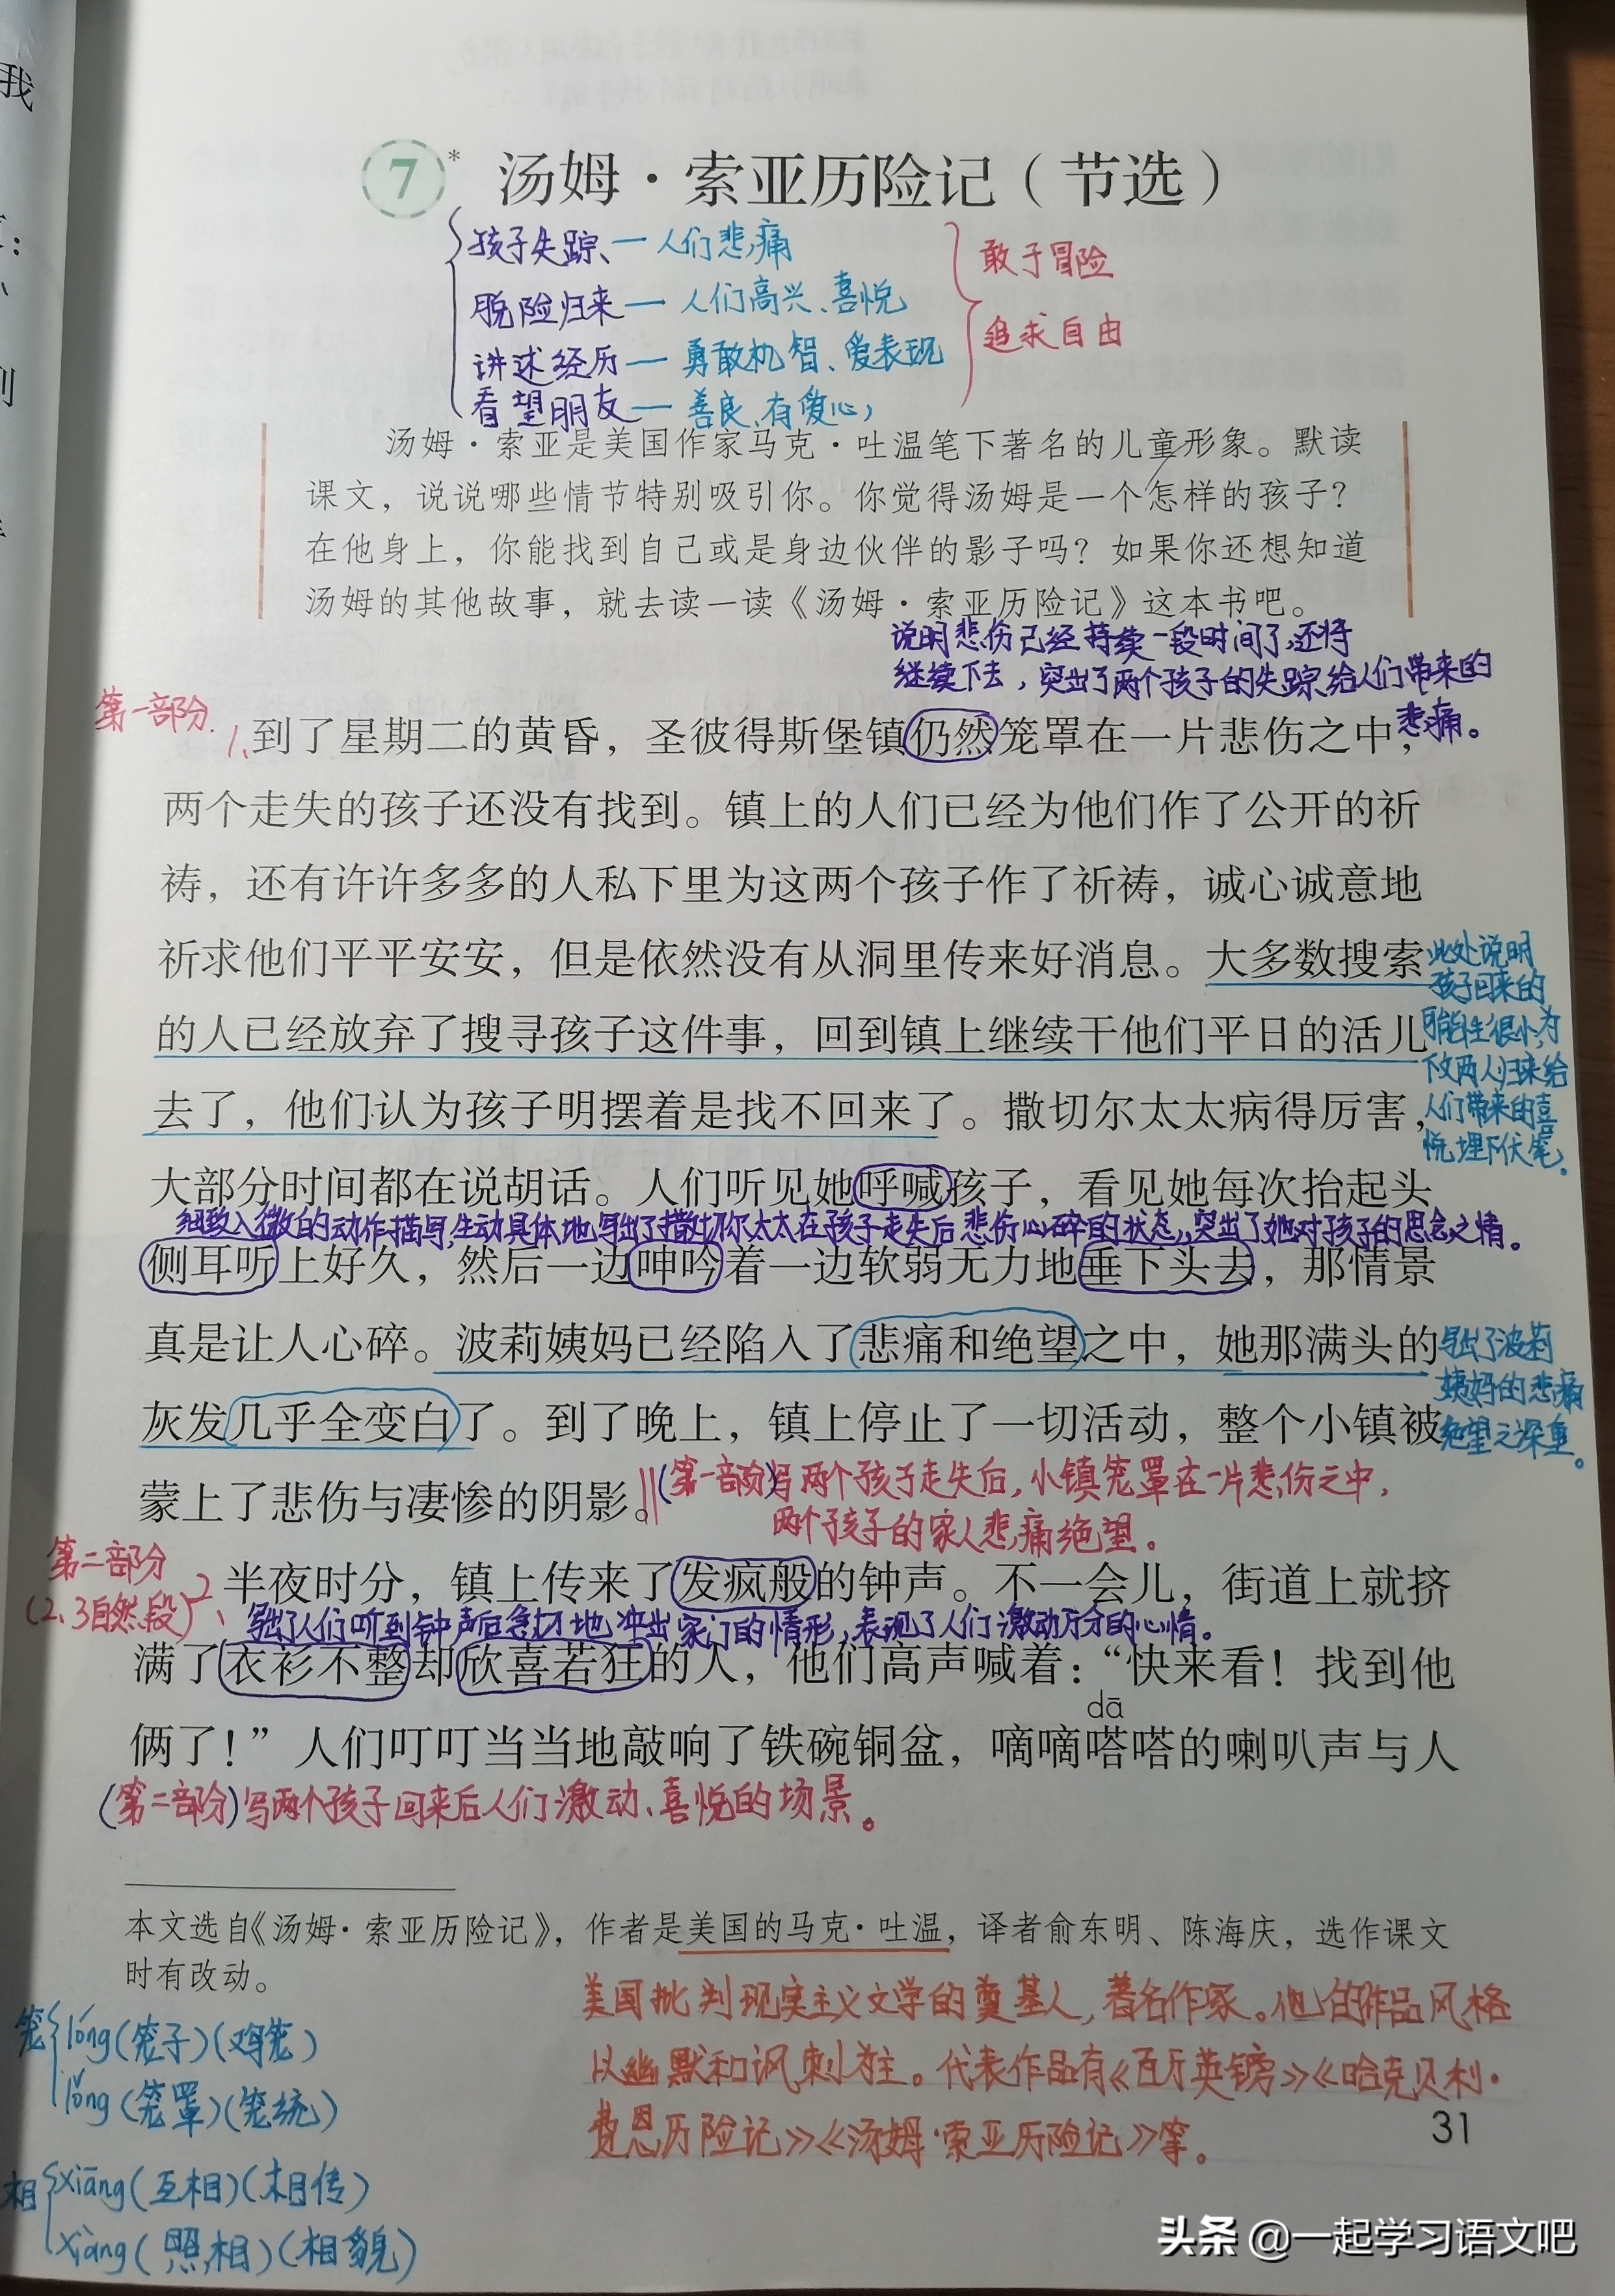 我
刂
7* 汤姆·索亚历险记（节选）
孩子失踪 — 人们悲痛
脱险归来 — 人们高兴、喜悦
讲述经历 — 勇敢机智、爱表现
看望朋友 — 善良、有爱心
敢于冒险
追求自由
汤姆·索亚是美国作家马克·吐温笔下著名的儿童形象。默读
课文，说说哪些情节特别吸引你。你觉得汤姆是一个怎样的孩子？
在他身上，你能找到自己或是身边伙伴的影子吗？如果你还想知道
汤姆的其他故事，就去读一读《汤姆·索亚历险记》这本书吧。
说明悲伤已经持续一段时间了，还将
继续下去，突出了两个孩子的失踪给人们带来的
悲痛。
第一部分.
1、到了星期二的黄昏，圣彼得斯堡镇仍然笼罩在一片悲伤之中，
两个走失的孩子还没有找到。镇上的人们已经为他们作了公开的祈
祷，还有许许多多的人私下里为这两个孩子作了祈祷，诚心诚意地
祈求他们平平安安，但是依然没有从洞里传来好消息。大多数搜索
的人已经放弃了搜寻孩子这件事，回到镇上继续干他们平日的活儿
去了，他们认为孩子明摆着是找不回来了。撒切尔太太病得厉害，
此处说明
孩子回来的
可能性很小，为
下文两人归来给
人们带来的喜
悦埋下伏笔。
大部分时间都在说胡话。人们听见她呼喊孩子，看见她每次抬起头
细致入微的动作描写，生动具体地写出了撒切尔太太在孩子走失后悲伤心碎的状态，突出了她对孩子的思念之情。
侧耳听上好久，然后一边呻吟着一边软弱无力地垂下头去，那情景
真是让人心碎。波莉姨妈已经陷入了悲痛和绝望之中，她那满头的
灰发几乎全变白了。到了晚上，镇上停止了一切活动，整个小镇被
写出了波莉
姨妈的悲痛
绝望之深重。
蒙上了悲伤与凄惨的阴影。
(第一部分)写两个孩子走失后，小镇笼罩在一片悲伤之中，
两个孩子的家人悲痛绝望。
第二部分
(2、3自然段)
2、半夜时分，镇上传来了发疯般的钟声。不一会儿，街道上就挤
写出了人们听到钟声后急切地冲出家门的情形，表现了人们激动万分的心情。
满了衣衫不整却欣喜若狂的人，他们高声喊着：“快来看！找到他
dā
俩了！”人们叮叮当当地敲响了铁碗铜盆，嘀嘀嗒嗒的喇叭声与人
(第二部分)写两个孩子回来后人们激动、喜悦的场景。
本文选自《汤姆·索亚历险记》，作者是美国的马克·吐温，译者俞东明、陈海庆，选作课文
时有改动。
美国批判现实主义文学的奠基人，著名作家。他的作品风格
以幽默和讽刺为主。代表作品有《百万英镑》《哈克贝利·
费恩历险记》《汤姆·索亚历险记》等。
笼 lóng(笼子)(鸡笼)
lǒng(笼罩)(笼统)
相 xiāng(互相)(相传)
xiàng(照相)(相貌)
31
头条 @一起学习语文吧